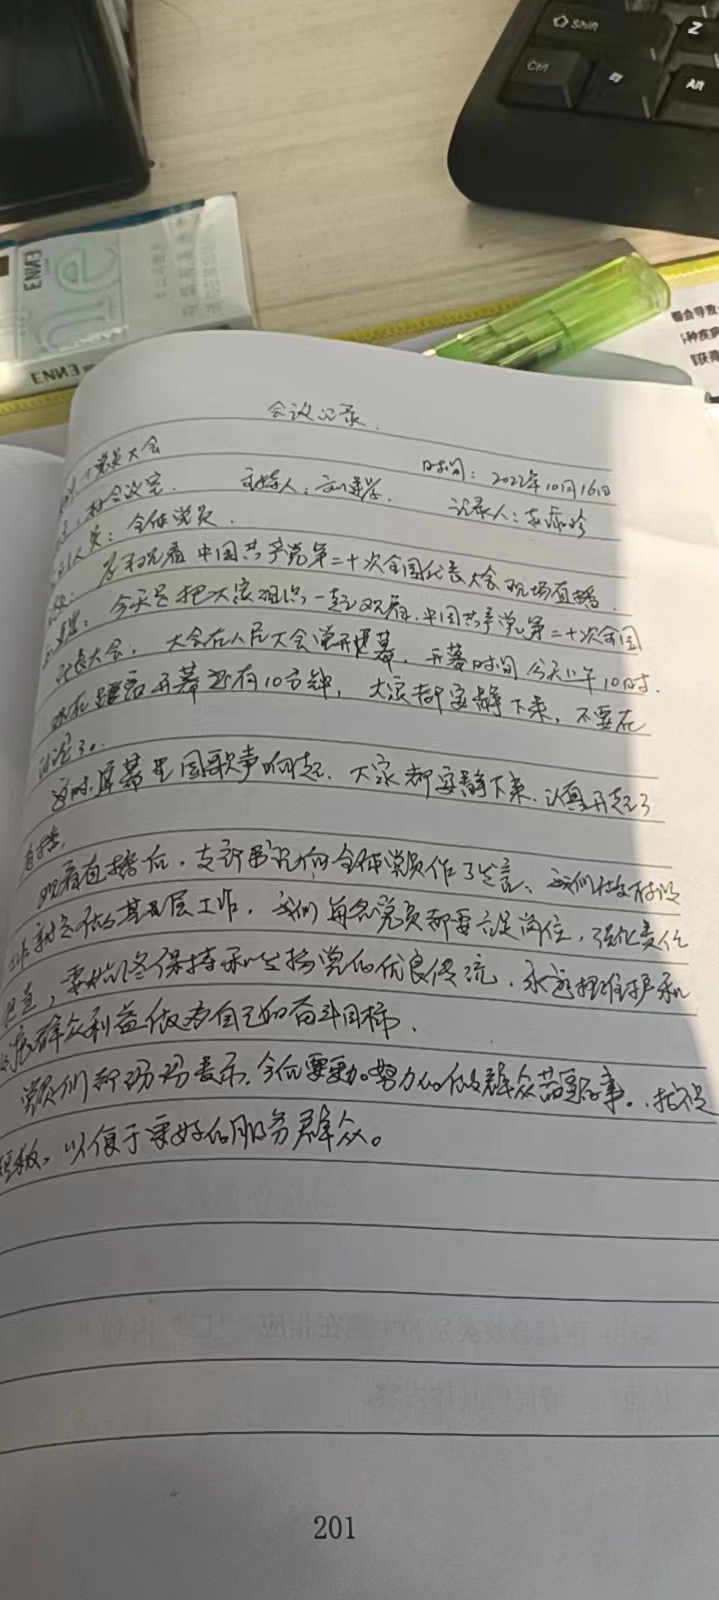 Shift
Z
Ctrl
Alt
ENNE
ENNE
会导致
种疾病
获得
会议记录
党员大会 时间：2022年10月16日
村会议室 主持人： 记录人：
人员：全体党员
观看中国共产党第二十次全国代表大会现场直播
今天是把大家组织一起观看中国共产党第二十次全国
代表大会，大会在人民大会堂开幕，开幕时间今天上午10时.
现在距离开幕还有10分钟，大家都安静下来，不要在
讨论了。
这时屏幕里国歌声响起，大家都安静下来，认真开起了
直播.
观看直播后，支部书记向全体党员作了发言、我们
基层工作，我们每名党员都要立足岗位，强化责任
担当，要始终保持和发扬党的优良传统，永远把维护和
群众利益做为自己的奋斗目标.
党员们都玛玛表示，今后要更加努力的做群众事。
短板，以便于更好的服务群众。
201